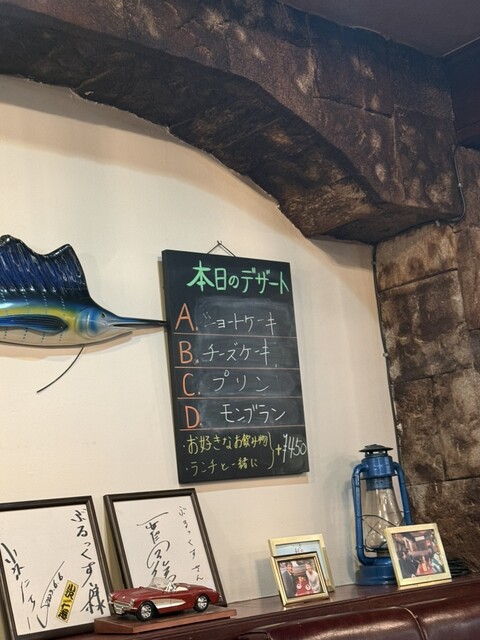 本日のデザート
A. ショートケーキ
B. チーズケーキ
C. プリン
D. モンブラン
・お好きなお飲み物
・ランチと一緒に
+¥450
ぶるっくす様
ぶるっくすさん